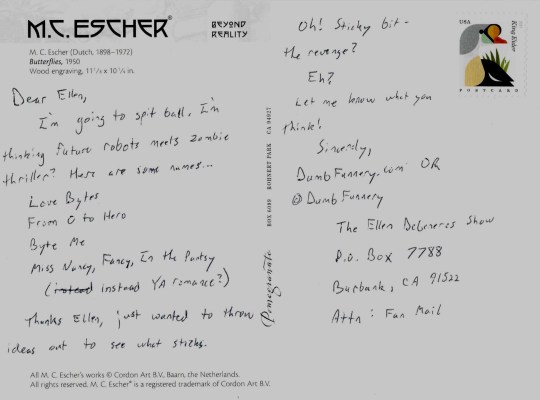 M.C. ESCHER®
BEYOND
REALITY
M. C. Escher (Dutch, 1898–1972)
Butterflies, 1950
Wood engraving, 11⅛ x 10¼ in.
Dear Ellen,
I'm going to spit ball. I'm
thinking future robots meets zombie
thriller? Here are some names...
Love Bytes
From 0 to Hero
Byte Me
Miss Nancy, Fancy, In the Pantsy
(instead YA romance?)
Thanks Ellen, just wanted to throw
ideas out to see what sticks.
All M. C. Escher's works © Cordon Art B.V., Baarn, the Netherlands.
All rights reserved. M. C. Escher® is a registered trademark of Cordon Art B.V.
BOX 6099 ROHNERT PARK CA 94927
Pomegranate
Oh! Sticky bit -
the revenge?
Eh?
Let me know what you
think!
Sincerely,
DumbFunnery.com OR
@DumbFunnery
USA
King Eider
POSTCARD
The Ellen DeGeneres Show
P.O. Box 7788
Burbank, CA 91522
Attn: Fan Mail